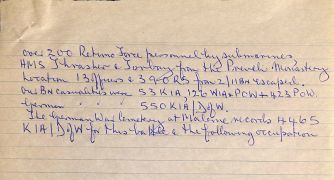 over 200 Retimo Force personnel by submarines,
HMS Thrasher & Torbay from the Preveli Monastery
Location 13 Officers & 39 ORs from 2/11BN escaped.
Our BN casualties were 53 KIA, 126 WIA + POW + 423 POW.
German " " 550 KIA/DofW.
The German War Cemetery at Maleme, records 4465
KIA/DofW for this battle & the following occupation